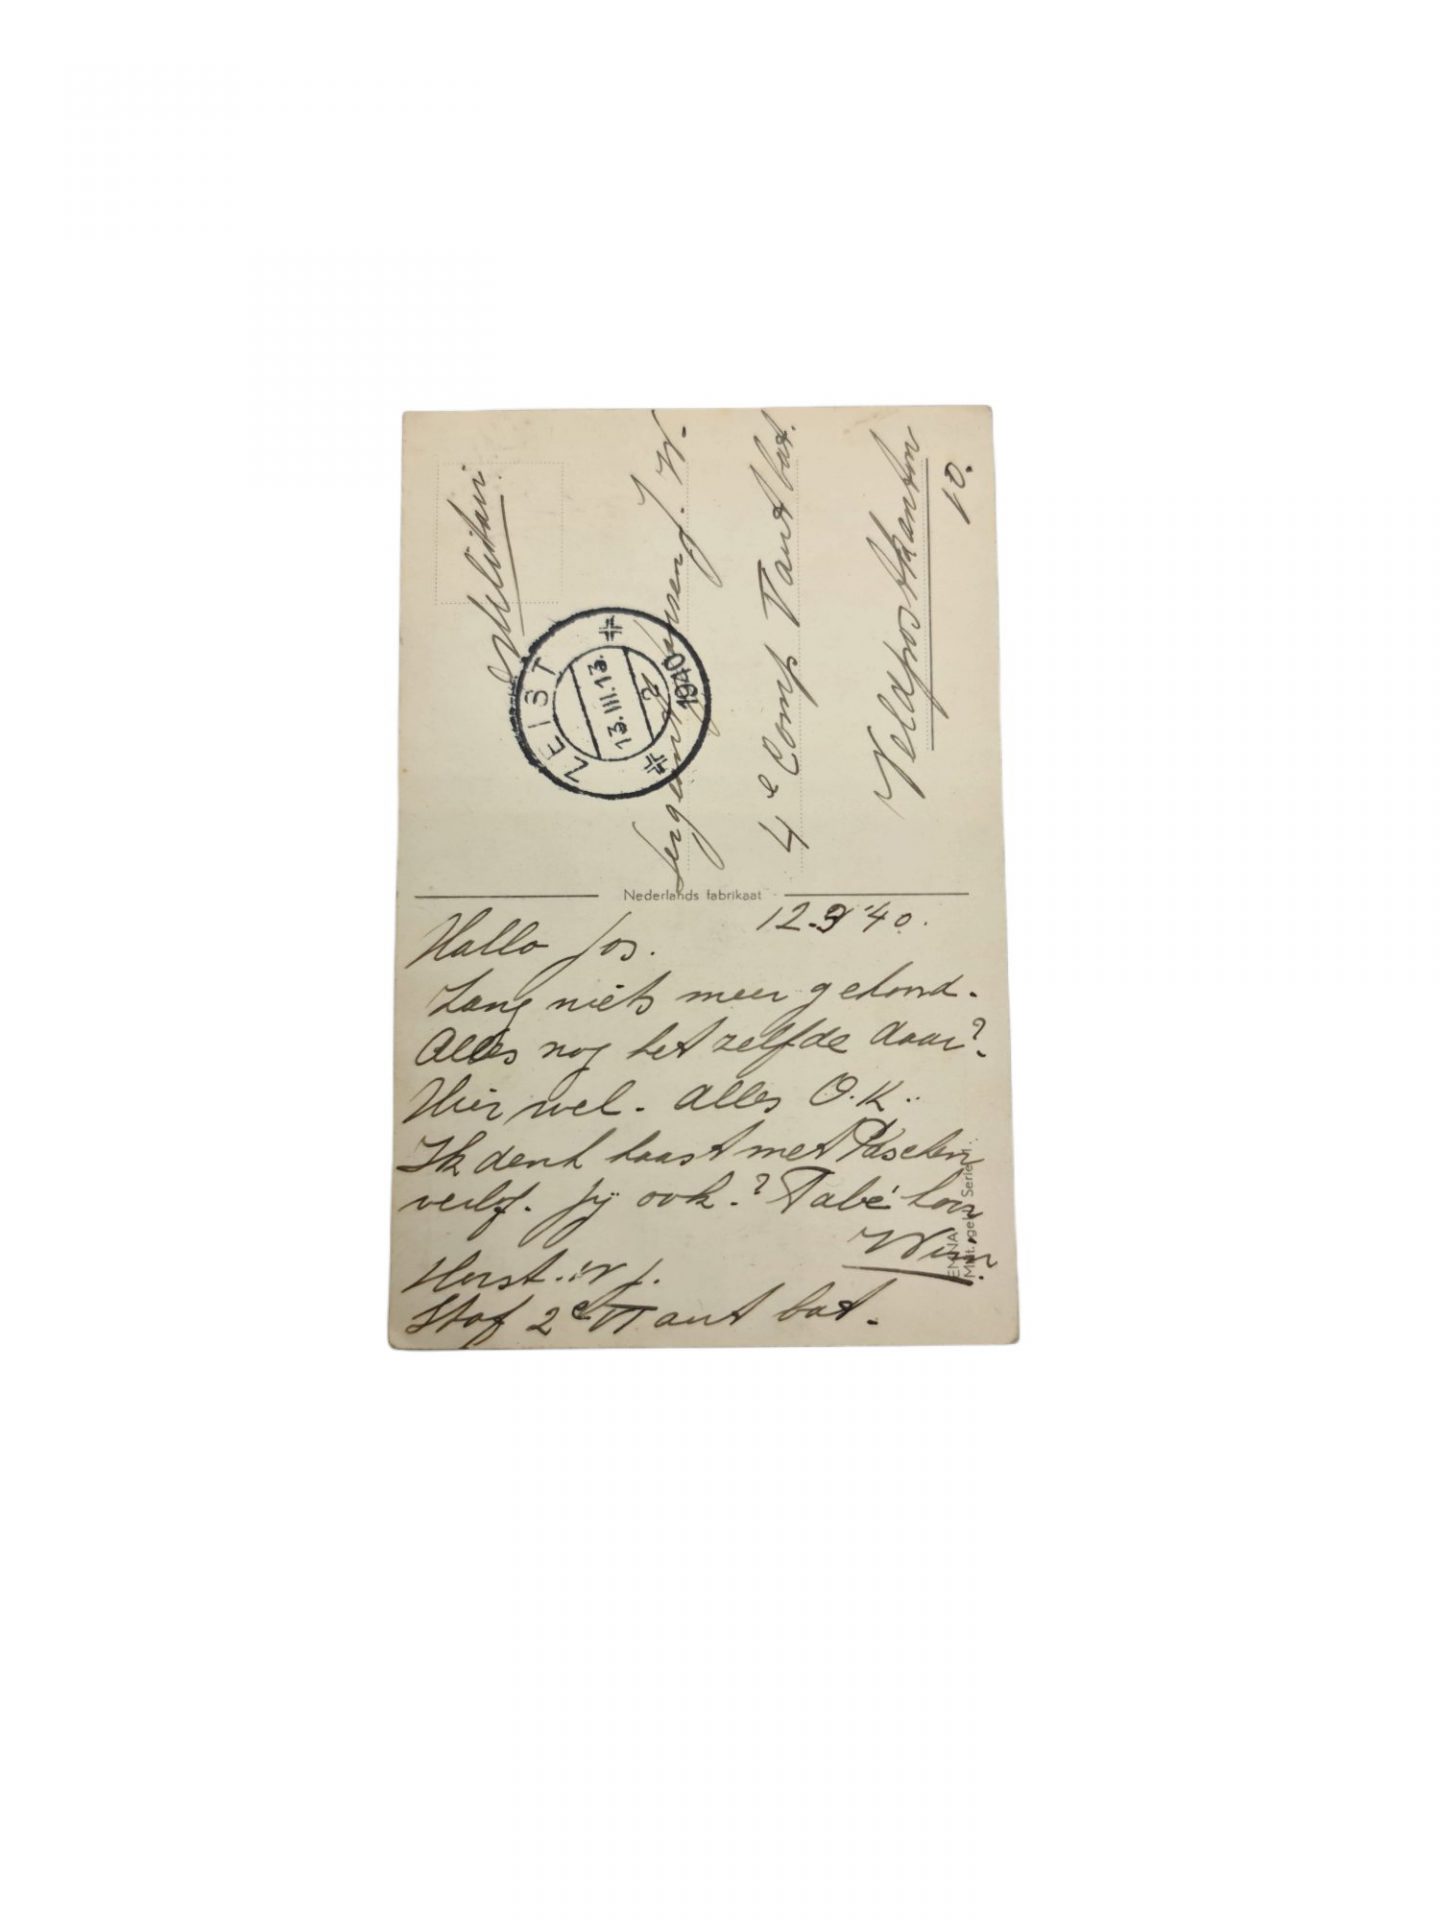 Militair.
ZEIST
13.III.13.
2
1940
Sergeant Janssen J. W.
4e Comp Paut bat.
Veldpostkantoor
10.
Nederlands fabrikaat
12.3 '40.
Hallo Jos.
Lang niets meer gehoord.
Alles nog het zelfde daar?
Hier wel. Alles O.K..
Ik denk haast met Paschen
verlof. Jij ook.? Tabé hoor
Wim.
Horst. W J.
Staf 2e Paut bat.
EMNA
Milit. Serie